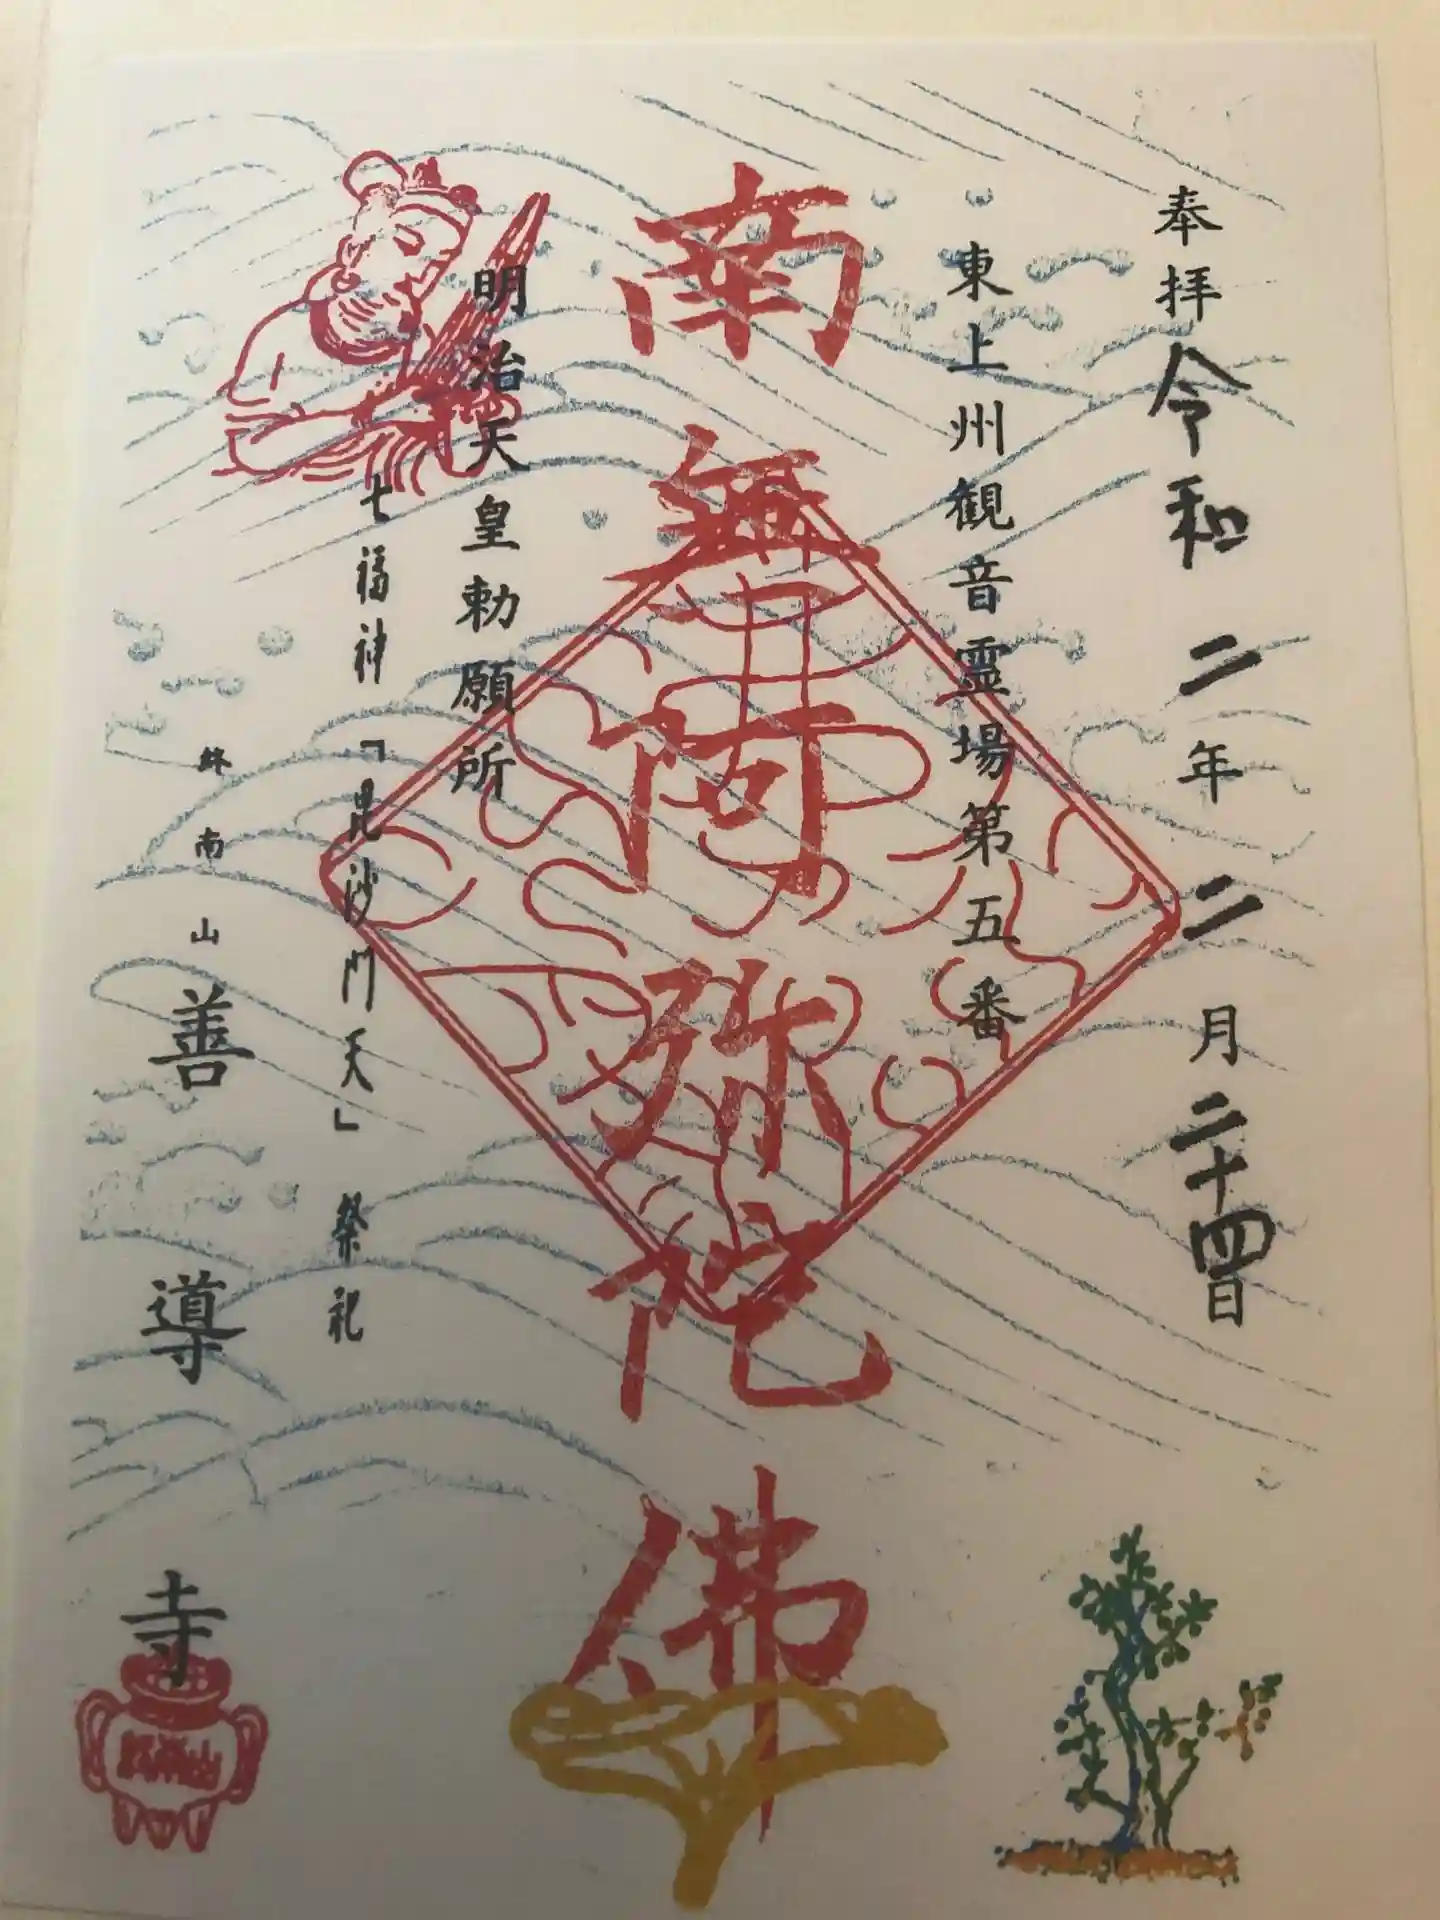 奉拝 令和二年二月二十四日
東上州観音霊場第五番
南無阿弥陀佛
明治天皇勅願所
七福神「毘沙門天」祭礼
終南山 善導寺